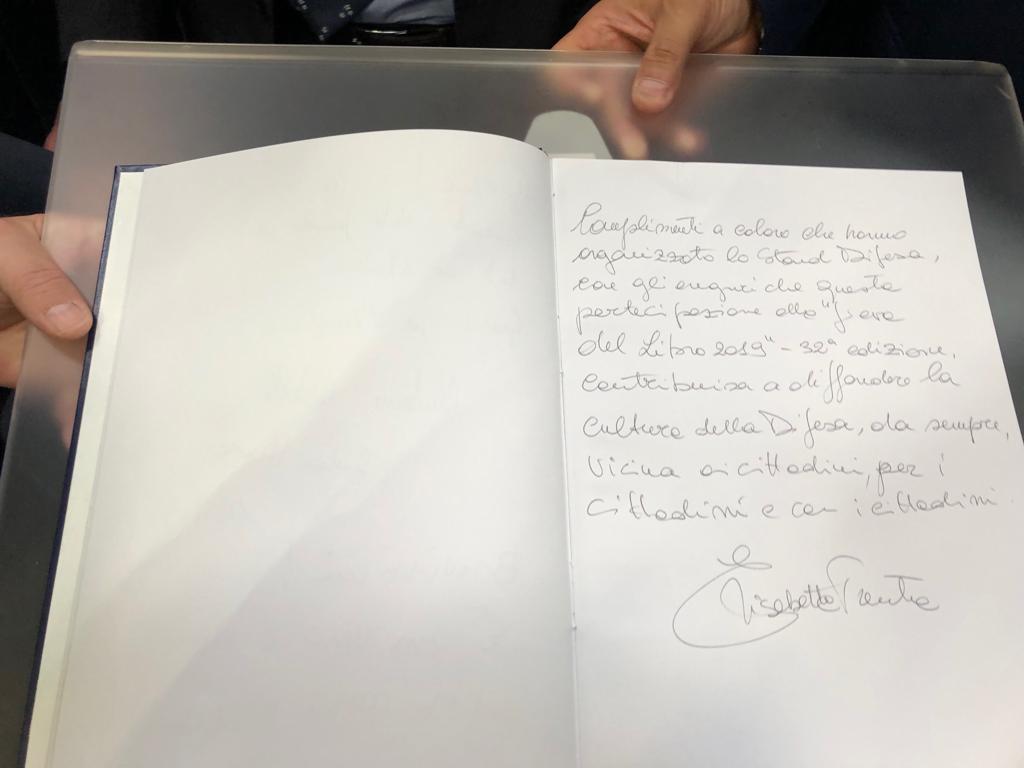 Complimenti a coloro che hanno
organizzato lo Stand Difesa,
con gli auguri che questa
partecipazione alla "Fiera
del Libro 2019" - 32ª edizione,
contribuisca a diffondere la
cultura della Difesa, da sempre,
vicina ai cittadini, per i
cittadini e con i cittadini.
Elisabetta Trenta